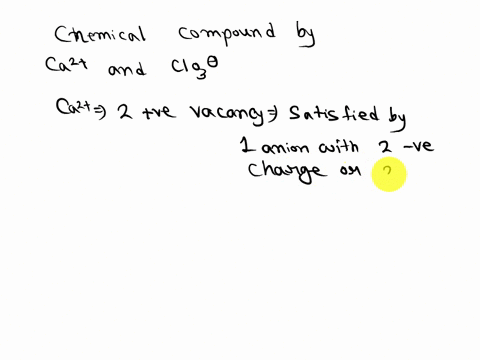 Chemical compound by
Ca²⁺ and ClO₃⊖
Ca²⁺ ⇒ 2 +ve vacancy ⇒ Satisfied by
1 anion with 2 -ve
charge or